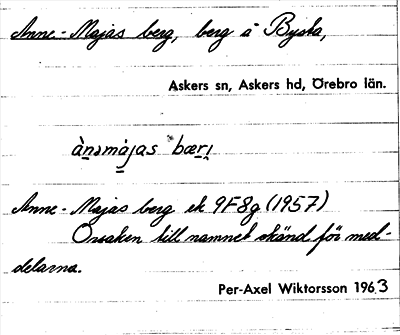 Anne-Majas berg, berg å Byska,
Askers sn, Askers hd, Örebro län.
ànəmàjas bærj
Anne-Majas berg ek 9F8g (1957)
Orsaken till namnet okänd för med-
delarna.
Per-Axel Wiktorsson 1963